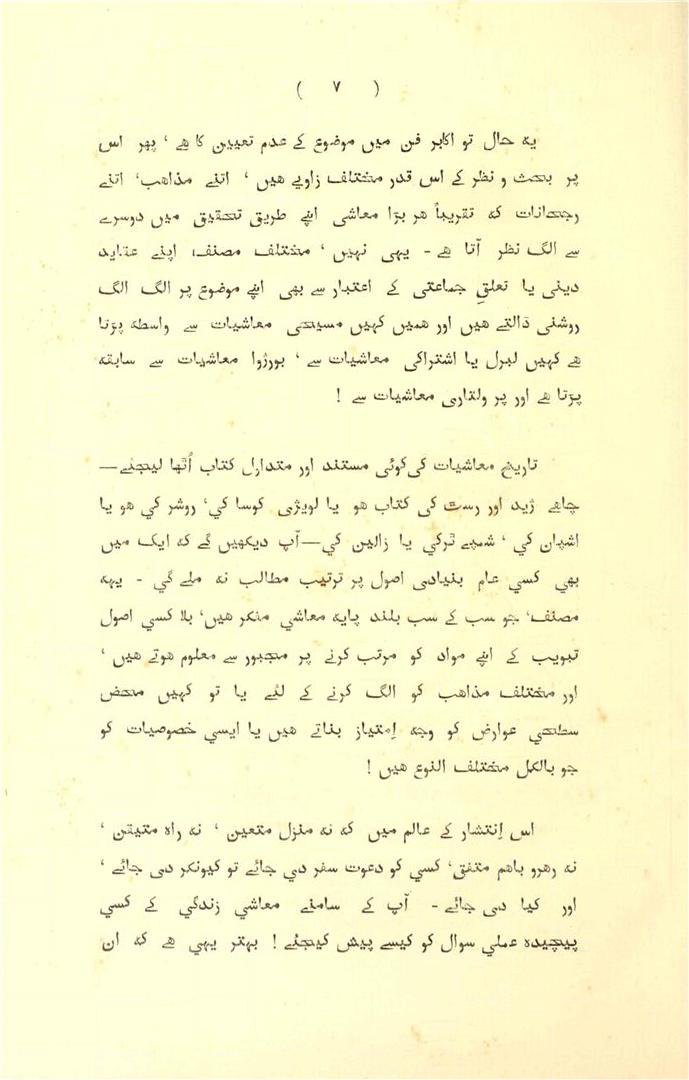 ( ۷ )
یہ حال تو اکابر فن میں موضوع کے عدم تعیین کا ہے ، پھر اس
پر بحث و نظر کے اس قدر مختلف زاویے ہیں ، اتنے مذاہب، اتنے
رجحانات کہ تقریباً ہر بڑا معاشی اپنے طریق تحقیق میں دوسرے
سے الگ نظر آتا ہے - یہی نہیں ، مختلف مصنف، اپنے عقاید
دینی یا تعلقِ جماعتی کے اعتبار سے بھی اپنے موضوع پر الگ الگ
روشنی ڈالتے ہیں اور ہمیں کہیں مسیحی معاشیات سے واسطہ پڑتا
ہے کہیں لبرل یا اشتراکی معاشیات سے ، بورژوا معاشیات سے سابقہ
پڑتا ہے اور پر ولتاری معاشیات سے !
تاریخ معاشیات کی کوئی مستند اور متداول کتاب اُٹھا لیجئے—
چاہے ژید اور رست کی کتاب ہو یا لویژی کوسا کي، روشر کي ہو یا
اشپان کي ، شمپے ٹرکي یا زالین کي—آپ دیکھیں گے کہ ایک میں
بھی کسي عام بنیادی اصول پر ترتیب مطالب نہ ملے گي - یہہ
مصنف، جو سب کے سب بلند پایہ معاشي مفکر ہیں، بلا کسي اصول
تبویب کے اپنے مواد کو مرتب کرنے پر مجبور سے معلوم ہوتے ہیں ،
اور مختلف مذاہب کو الگ کرنے کے لئے یا تو کہیں محض
سطحي عوارض کو وجہ اِمتیاز بناتے ہیں یا ایسي خصوصیات کو
جو بالکل مختلف النوع ہیں !
اس اِنتشار کے عالم میں کہ نہ منزل متعین ، نہ راہ متیقن ،
نہ رہرو باہم متفق، کسي کو دعوت سفر دي جائے تو کیونکر دی جائے ،
اور کیا دی جائے - آپ کے سامنے معاشي زندگي کے کسي
پیچیدہ عملي سوال کو کیسے پیش کیجئے ! بہتر یہي ہے کہ ان